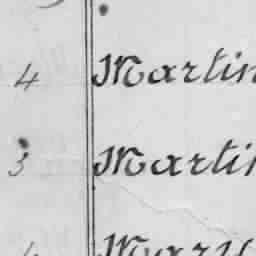 4 Martin
3 Martin
4 Mary